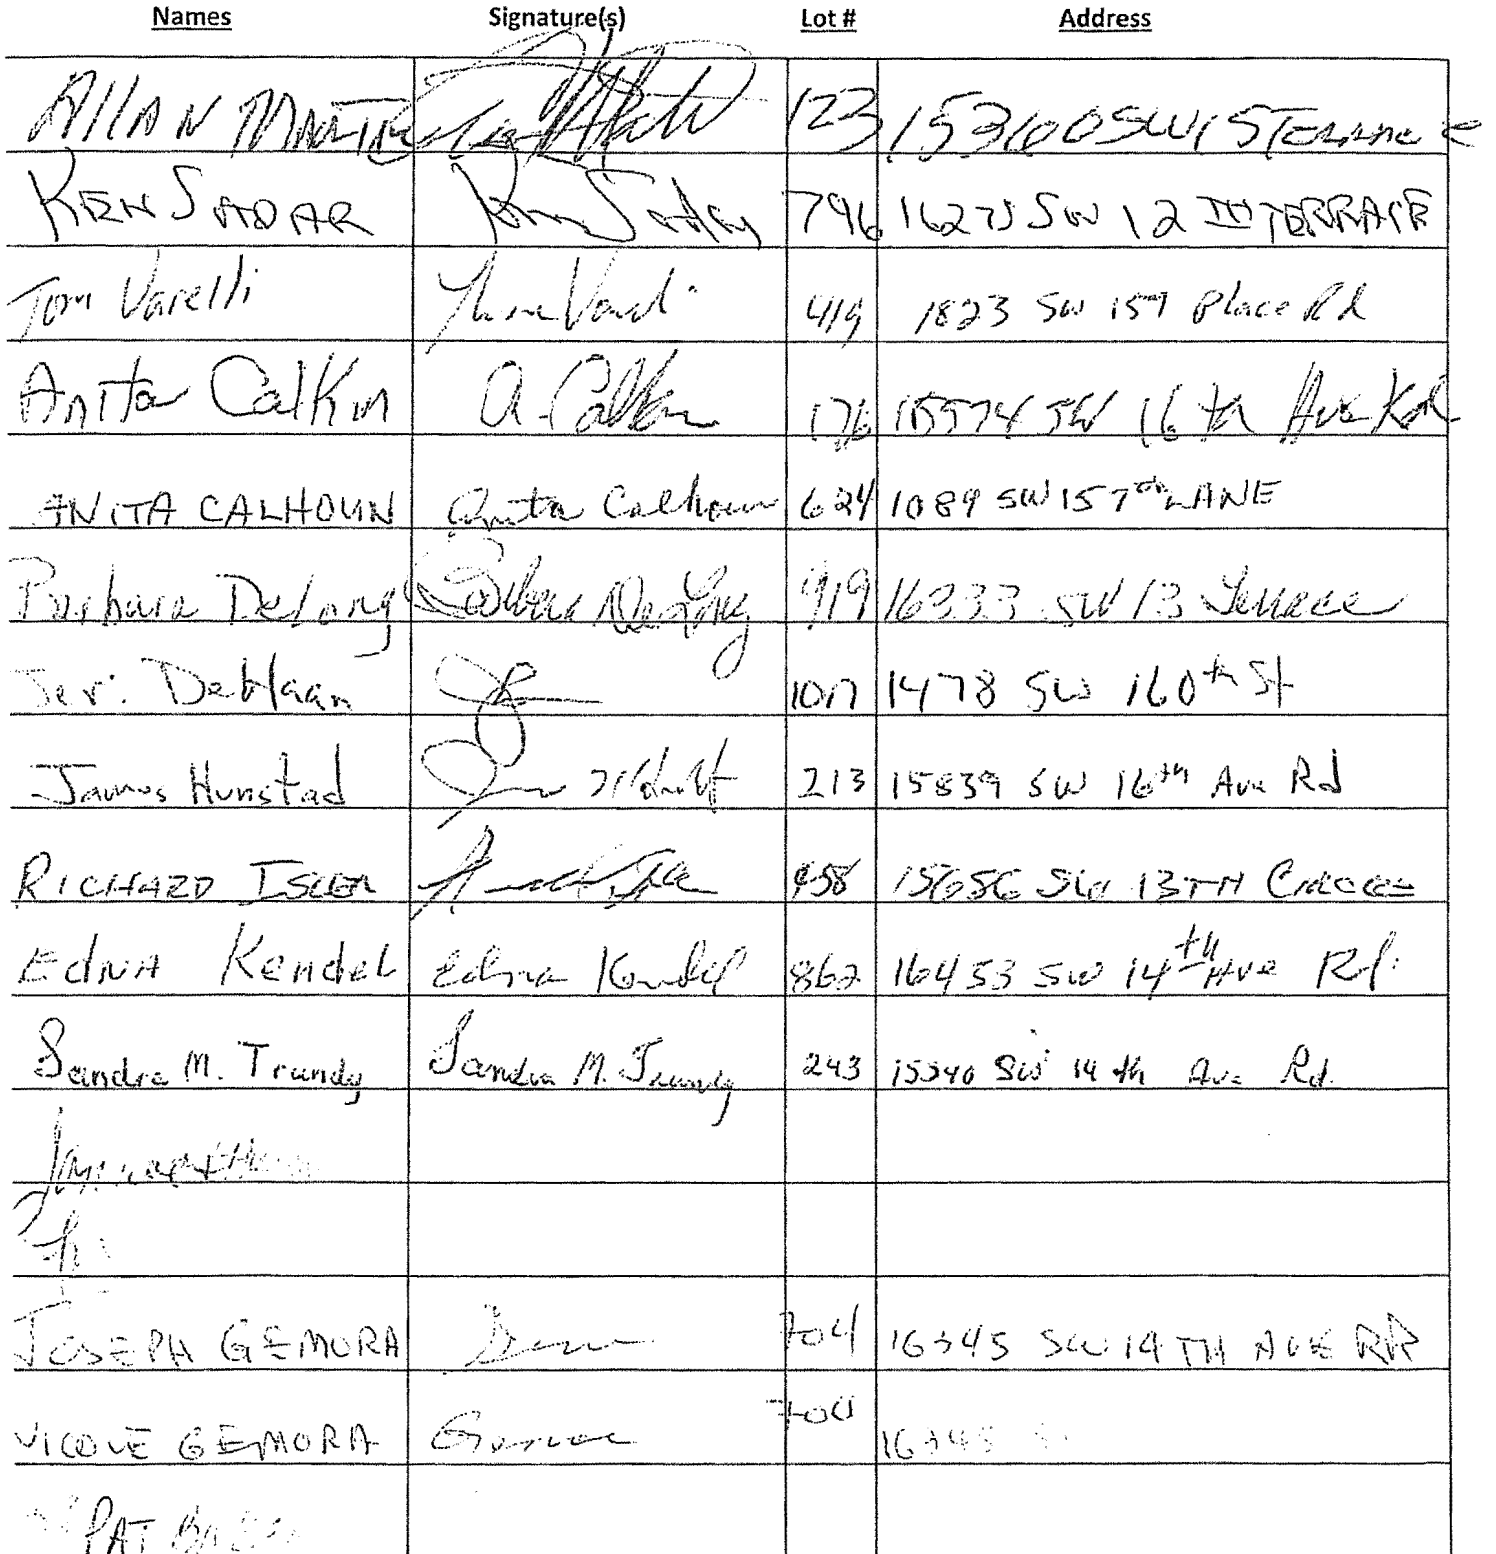 Names Signature(s) Lot # Address
AllAN 123 SW 15 Terrace
KEN SADAR Ken Sadar 796 16275 SW 12 TH TERRACE
Tom Varelli 419 1823 SW 157 Place Rd
Anita Calkin A. Calkin 176 15574 SW 16 th Ave Rd
ANITA CALHOUN Anita Calhoun 624 1089 SW 157th LANE
Barbara DeLong Barbara DeLong 919 16333 SW 13 Terrace
Jeri DeHaan 1017 1478 SW 160th St
James Hunstad 213 15839 SW 16th Ave Rd
RICHARD ISLER 458 15656 SW 13TH CIRCLE
EdNA Kendel Edna Kendel 862 16453 SW 14th Ave Rd.
Sandra M. Trundy Sandra M. Trundy 243 SW 14 th Ave Rd.
JOSEPH GEMORA 704 16345 SW 14 TH AVE RD
GEMORA 704
PAT